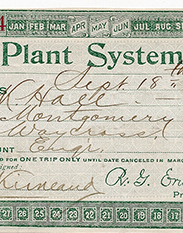 4 JAN FEB MAR APR MAY JUN JUL AUG SE
Plant System
Sept 18th
Hall
Montgomery
Waycross
OUNT Engr.
D FOR ONE TRIP ONLY UNTIL DATE CANCELED IN MARG
signed
Kirneand
R. G. Er
Pr
27 26 25 24 23 22 21 20 19 18 17